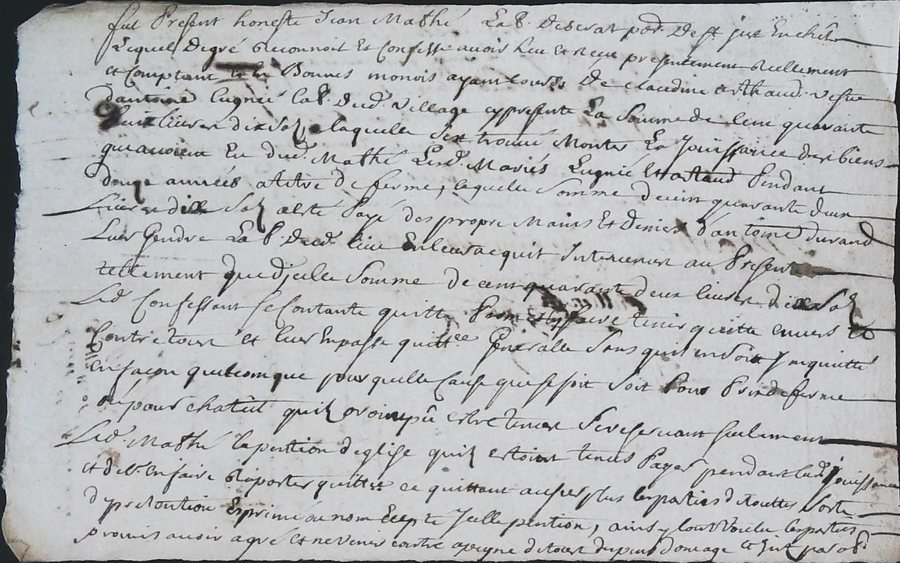 fut Present honeste Jean Mathé Lab. deserat par. de st just en chet
Lequel de gré reconnoit Et Confesse avoir heu et reçu presentement reellement
et Comptant en Bonnes monois ayant cours De claudine arthaud vefve
d'antoine Lugnié lab. dud. village cy presente La somme de Cent quarante
deux livres dix sol, a laquelle s'est trouvé Monter La Jouissance des biens
qu'avoient Eu dud. Mathé Lesd. Mariés Lugnié Et artaud Pendant
années a titre de ferme, laquelle somme de cent quarante deux
Livres dix sol a esté Payé des propre Mains Et deniers d'antoine durand
Leur Gendre La b. dud. lieu En leur acquit Intervenant au Present
tellement que d'icelle somme de cent quarante deux livres dix sol
Led. Confessant se Contante quitte Promet faire tenir quitte envers Et
Contre tous et leur En passe quittce Generalle sans qu'il en soit Inquietté
En façon quelconque pour quelle Cause que se soit soit Pour Prix de ferme
ou pour chatail qu'ilz avoint pû estre tenus se reservant seulement
Led. Mathé la portion d'eglise qu'ilz estoint tenus Payer pendant lad. jouissance
et de l'En faire raporter quittce se quittant au surplus les parties de touttes sorte
de pretention Exprimé ou non Excepté Icelle portion, ainsy l'ont Voulu les parties
promis avoir agré et ne venir contre a peyne de tous depens domage et Int. par obl.